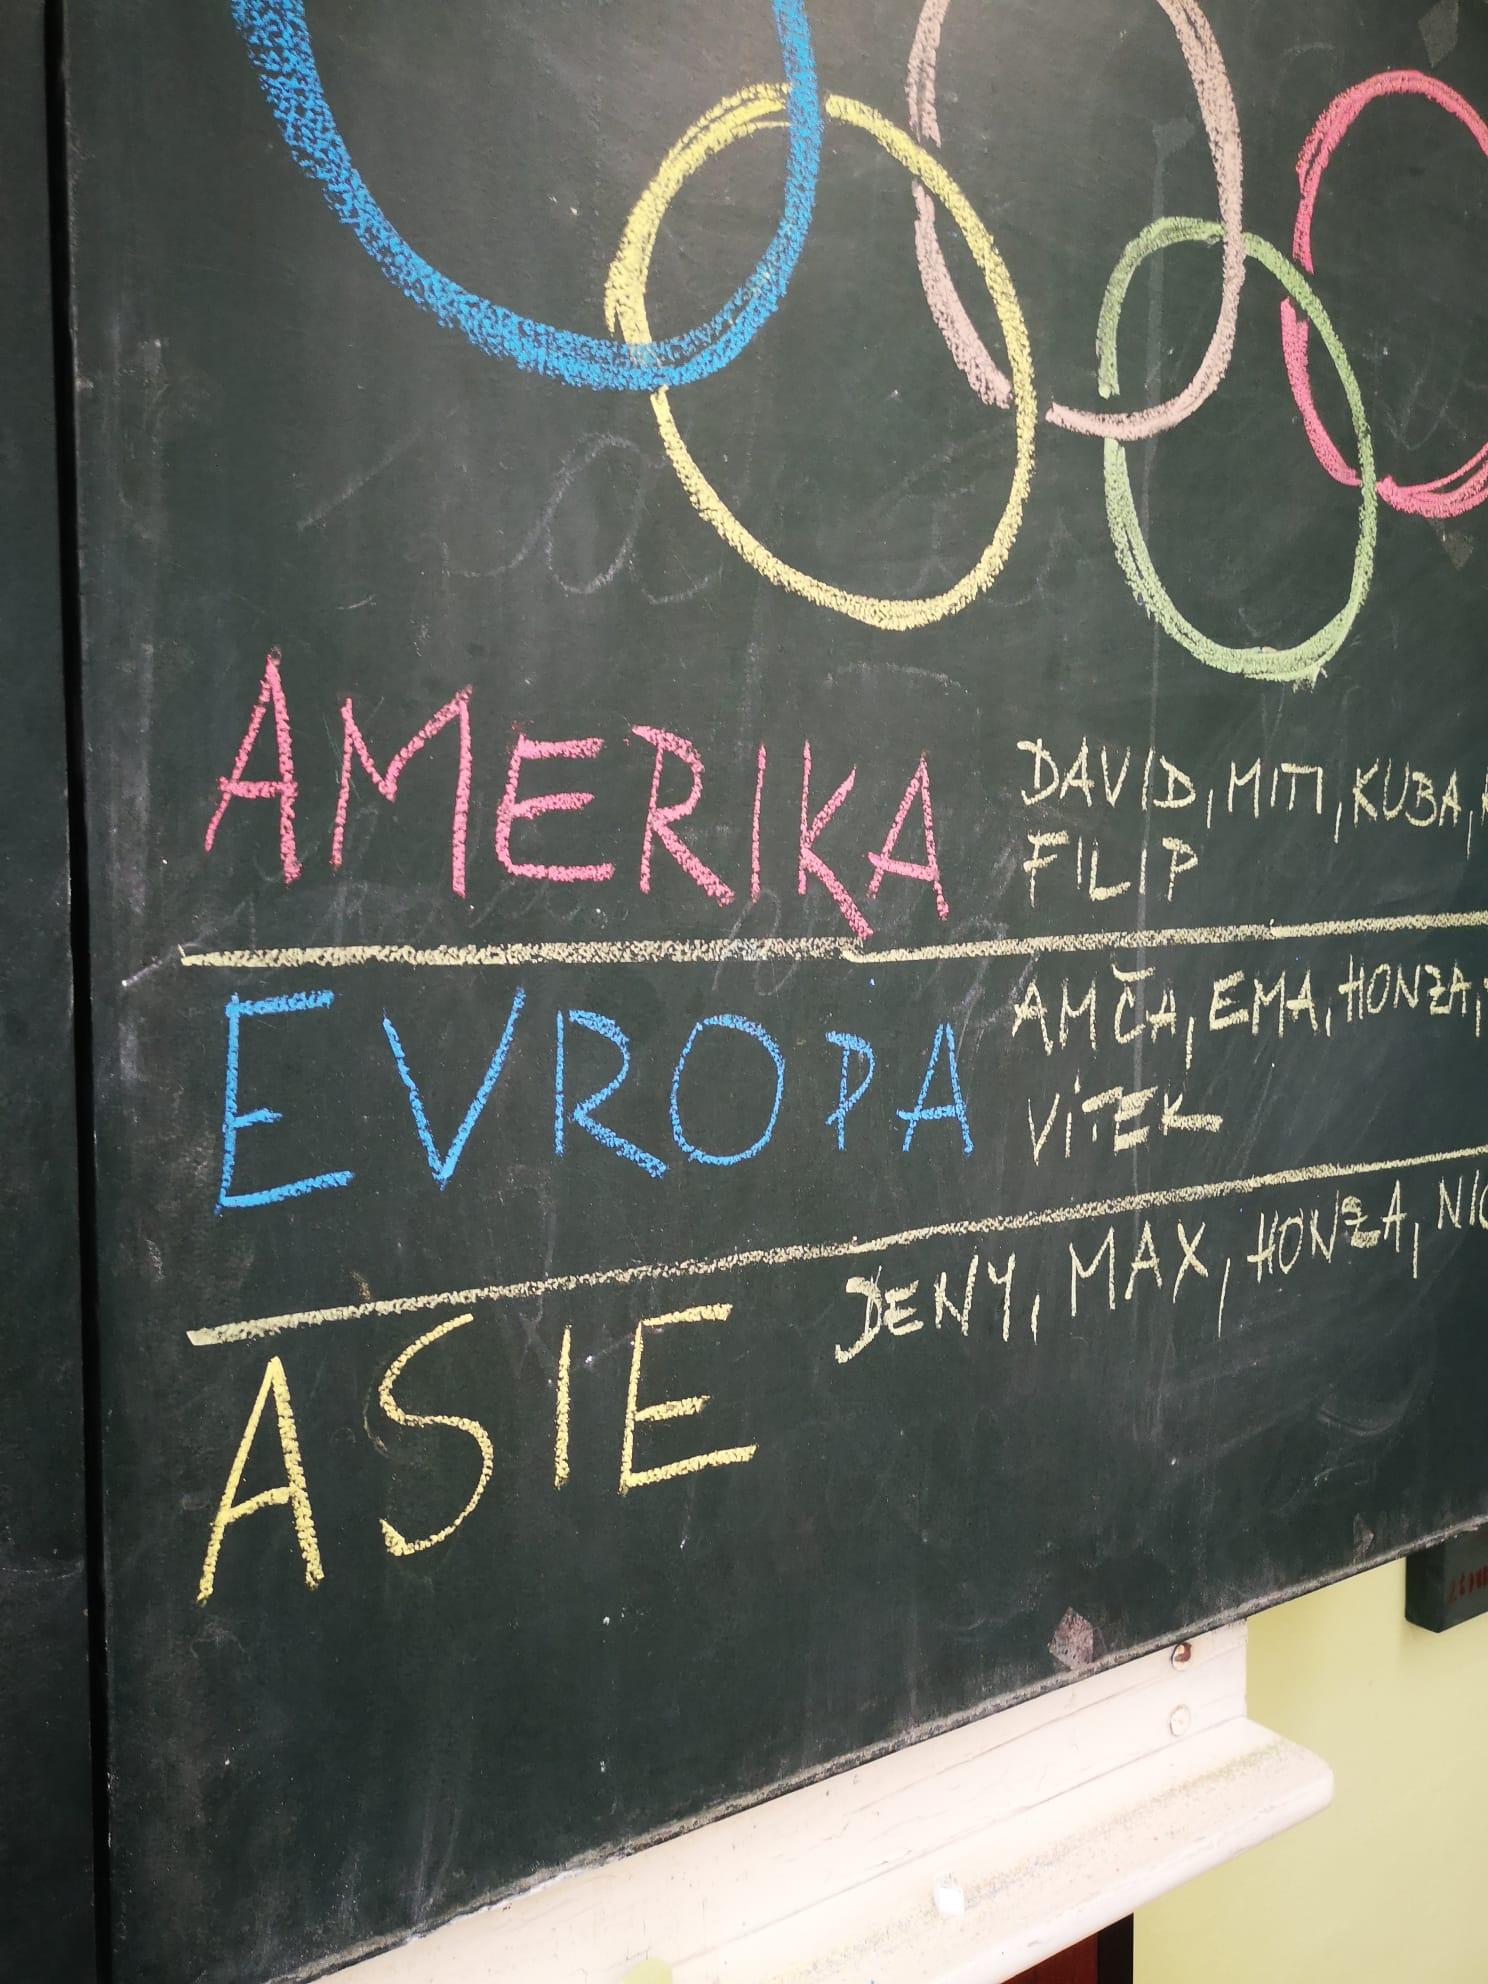 AMERIKA
DAVID, MITI, KUBA,
FILIP
EVROPA
AMČA, EMA, HONZA,
VÍTEK
ASIE
DENY, MAX, HONZA,